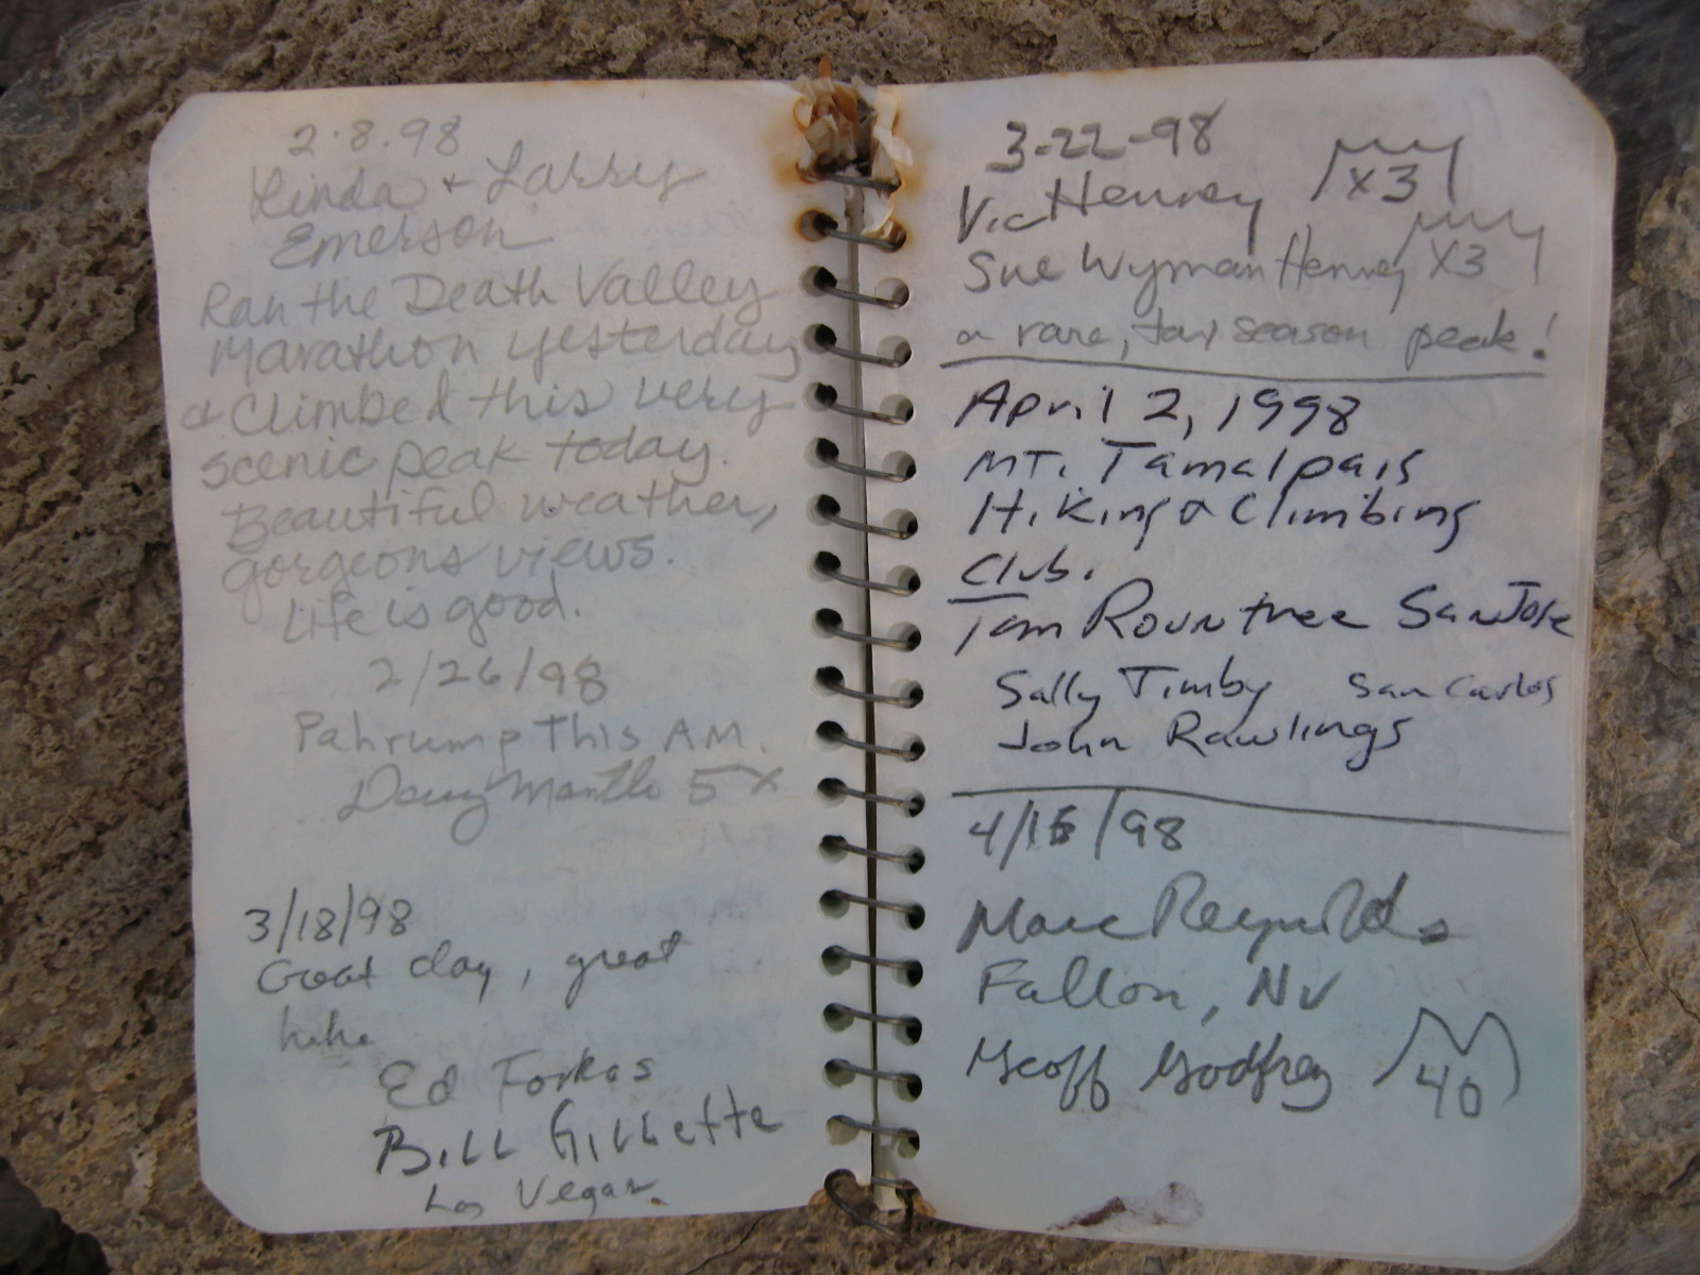 2.8.98
Linda + Larry
Emerson
Ran the Death Valley
Marathon yesterday
& Climbed this very
scenic peak today.
Beautiful weather,
gorgeous views.
Life is good.
2/26/98
Pahrump This AM.
Doug Mantle 5X
3/18/98
Great day, great
hike
Ed Forkos
BiLL GiLLette
Los Vegas.
3-22-98
Vic Henney X3
Sue Wyman Henney X3
a rare, tax season peak!
April 2, 1998
MT. Tamalpais
Hiking & Climbing
Club.
Tom Rountree San Jose
Sally Timby San Carlos
John Rawlings
4/15/98
Marc Reynolds
Fallon, NV
Geoff Godfrey 40